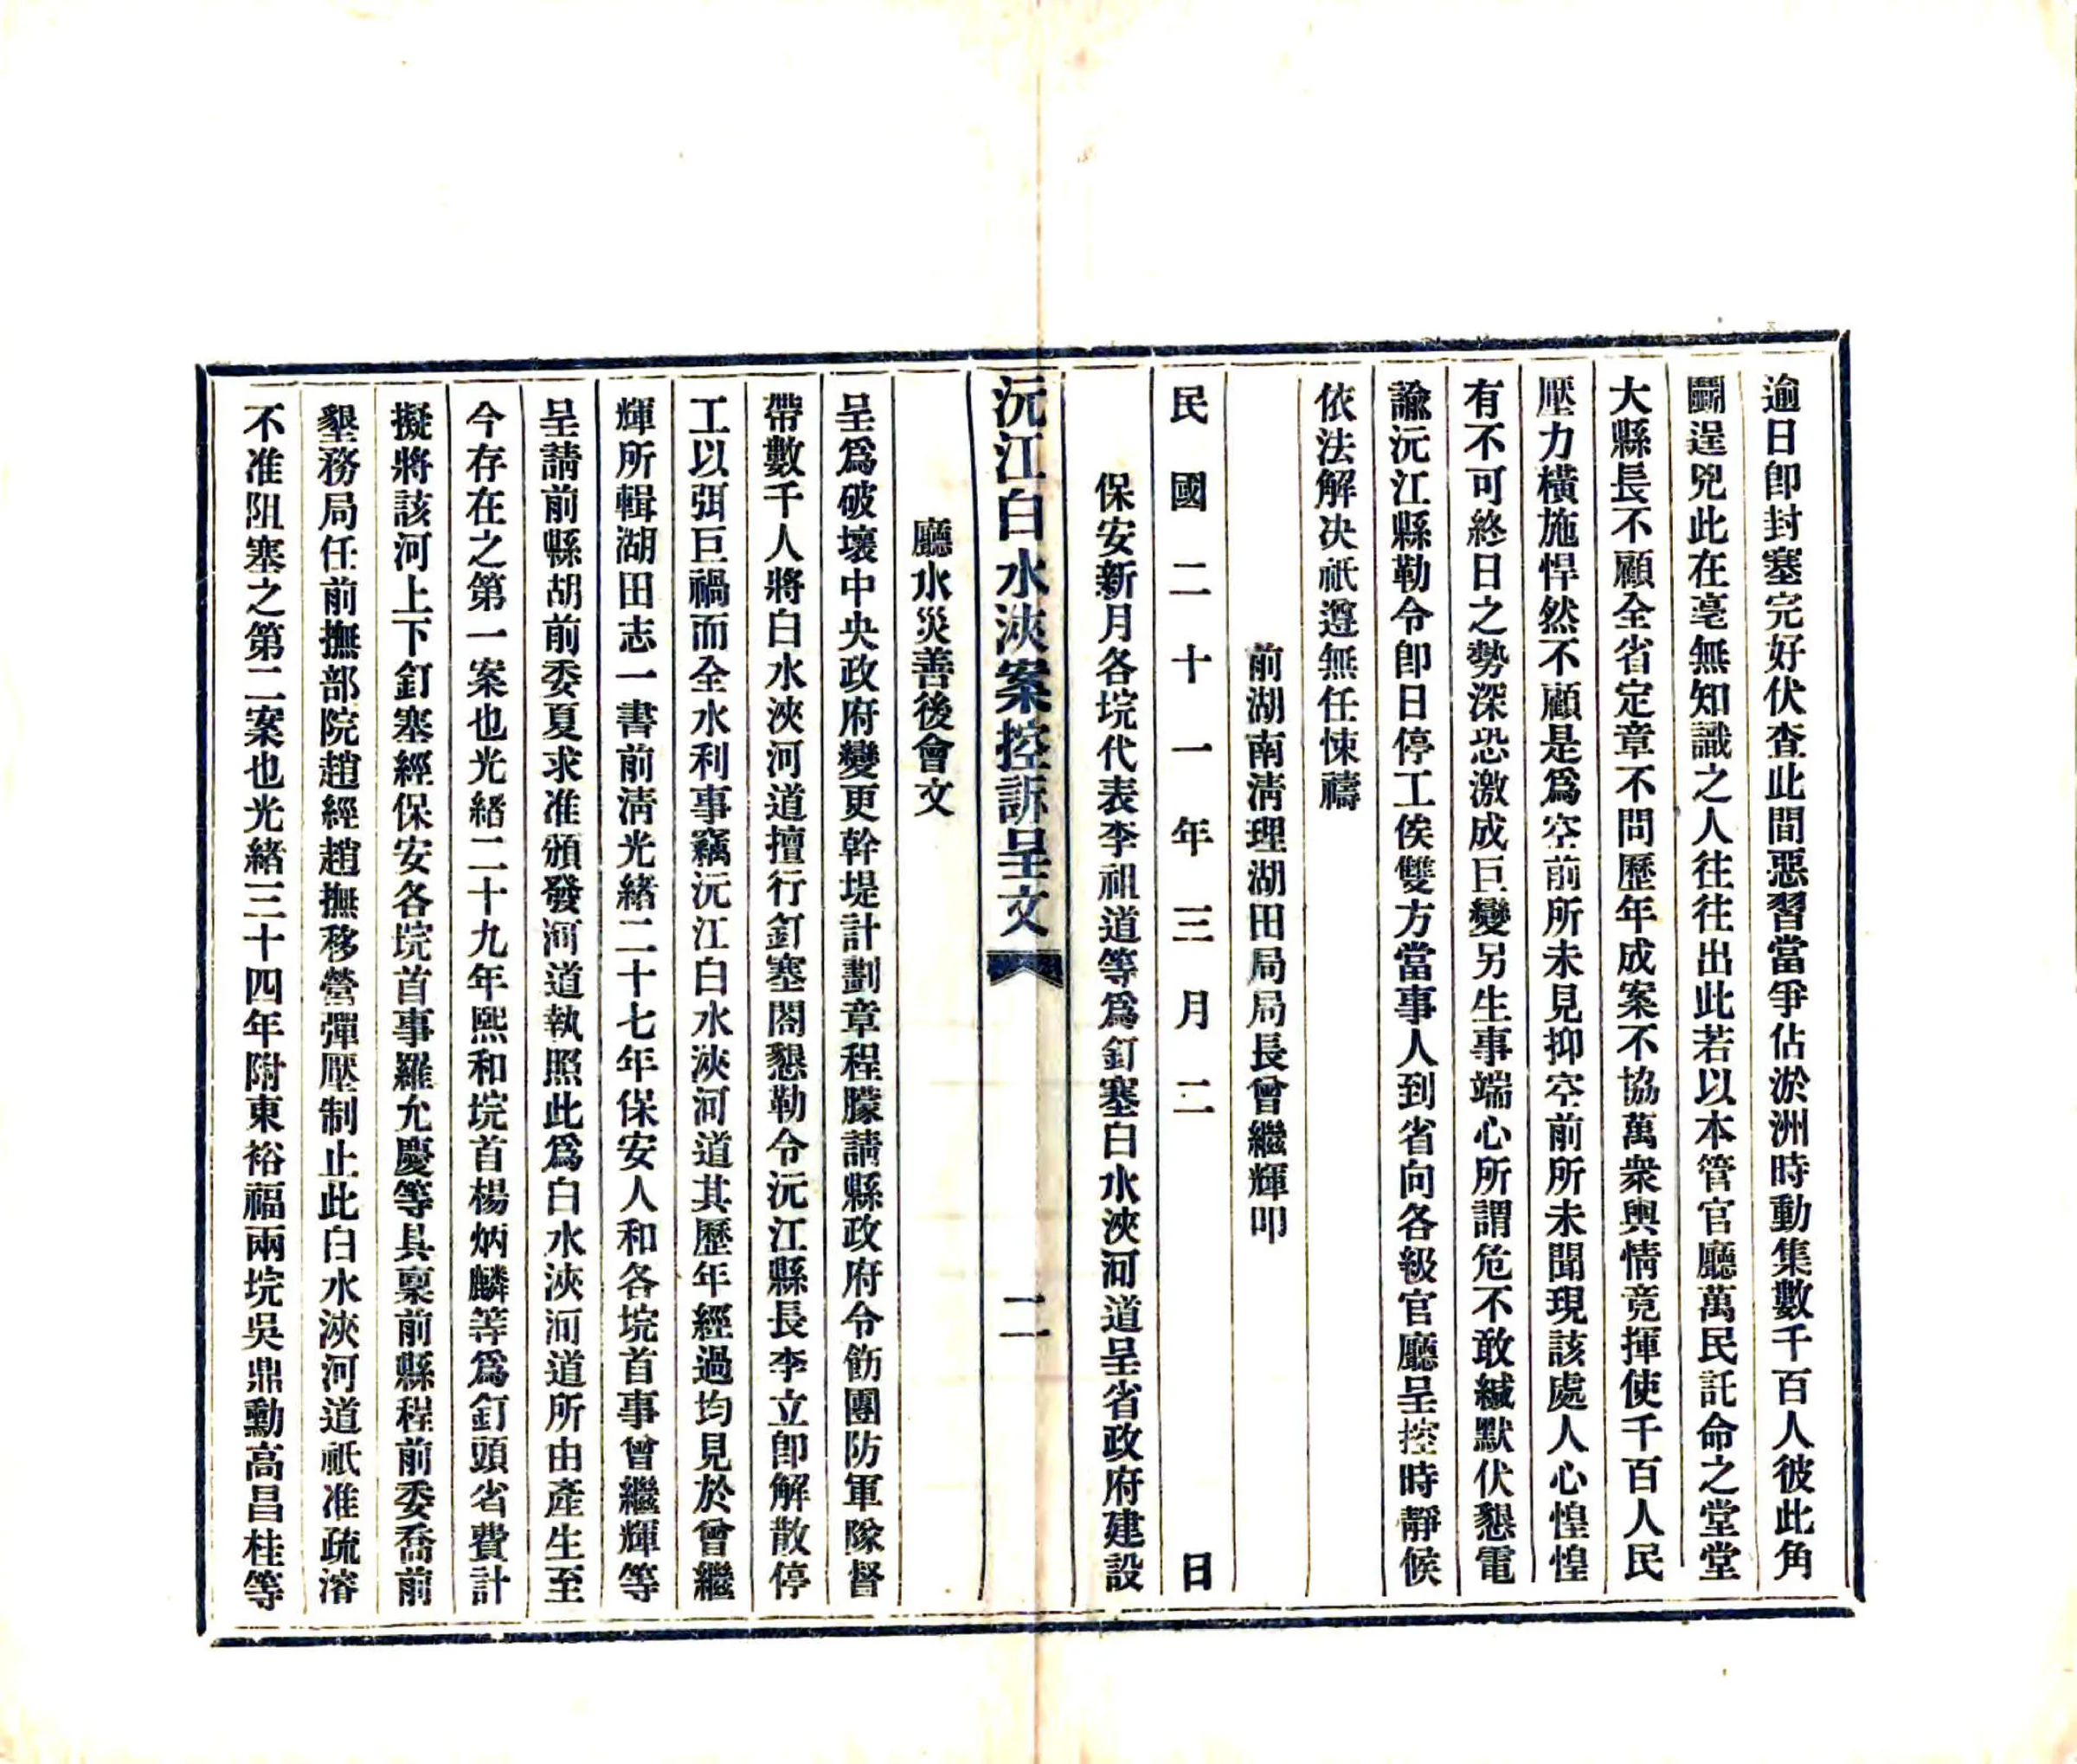 逾日卽封塞完好伏查此間惡習當爭佔淤洲時動集數千百人彼此角
鬭逞兇此在毫無知識之人往往出此若以本管官廳萬民託命之堂堂
大縣長不顧全省定章不問歷年成案不協萬衆輿情竟揮使千百人民
壓力橫施悍然不顧是爲空前所未見抑空前所未聞現該處人心惶惶
有不可終日之勢深恐激成巨變另生事端心所謂危不敢緘默伏懇電
諭沅江縣勒令卽日停工俟雙方當事人到省向各級官廳呈控時靜候
依法解决祇遵無任悚禱
前湖南淸理湖田局局長曾繼輝叩
民國二十一年三月二日
保安新月各垸代表李祖道等爲釘塞白水浹河道呈省政府建設
沅江白水浹案控訴呈文 二
廳水災善後會文
呈爲破壞中央政府變更幹堤計劃章程朦請縣政府令飭團防軍隊督
帶數千人將白水浹河道擅行釘塞閤懇勒令沅江縣長李立卽解散停
工以弭巨禍而全水利事竊沅江白水浹河道其歷年經過均見於曾繼
輝所輯湖田志一書前淸光緒二十七年保安人和各垸首事曾繼輝等
呈請前縣胡前委夏求准頒發河道執照此爲白水浹河道所由產生至
今存在之第一案也光緒二十九年熙和垸首楊炳麟等爲釘頭省費計
擬將該河上下釘塞經保安各垸首事羅允慶等具稟前縣程前委喬前
墾務局任前撫部院趙經趙撫移營彈壓制止此白水浹河道祇准疏濬
不准阻塞之第二案也光緒三十四年附東裕福兩垸吳鼎勳高昌桂等